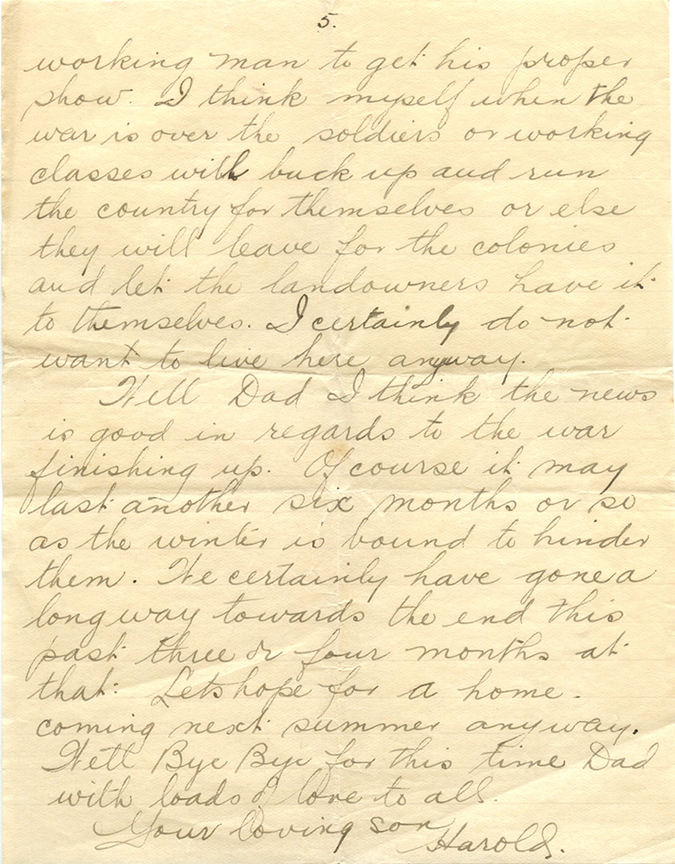 5.
working man to get his proper
show. I think myself when the
war is over the soldiers or working
classes will buck up and run
the country for themselves or else
they will leave for the colonies
and let the landowners have it
to themselves. I certainly do not
want to live here anyway.
Well Dad I think the news
is good in regards to the war
finishing up. Of course it may
last another six months or so
as the winter is bound to hinder
them. We certainly have gone a
long way towards the end this
past three or four months at
that. Lets hope for a home-
coming next summer anyway.
Well Bye Bye for this time Dad
with loads of love to all.
Your loving son
Harold.